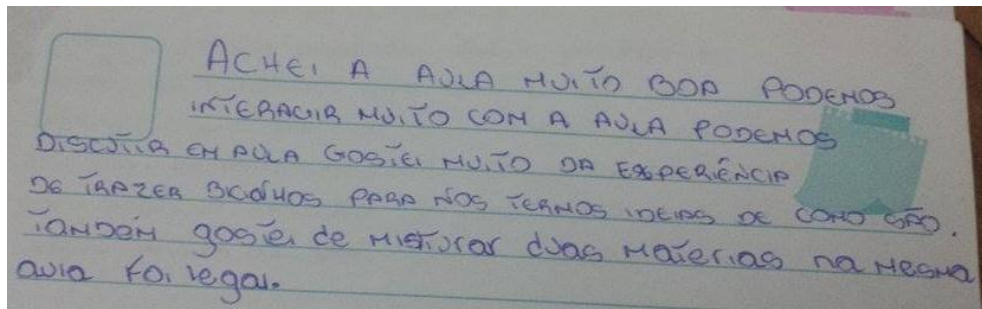 ACHEI A AULA MUITO BOA PODEMOS
INTERAGIR MUITO COM A AULA PODEMOS
DISCUTIR EM AULA GOSTEI MUITO DA EXPERIÊNCIA
DE TRAZER BICHOS PARA NOS TERMOS IDEIAS DE COMO SÃO.
TAMBÉM gostei de MISTURAR duas MATERIAS na MESMA
aula foi legal.